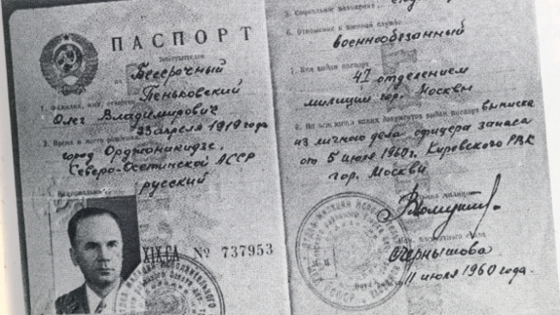 ПАСПОРТ
Бессрочный
Пеньковский
1. Фамилия, имя, отчество
Олег Владимирович
23 апреля 1919 года
2. Время и место рождения
город Орджоникидзе,
Северо-Осетинской АССР
русский
XIX СА № 737953
5. Социальное положение
6. Отношение к военной службе
военнообязанный
7. Кем выдан паспорт
47 отделением
милиции гор. Москвы
8. На основании каких документов выдан паспорт выписка
из личного дела офицера запаса
от 5 июля 1960г. Кировского РВК
гор. Москвы
Чернышова
11 июля 1960 года.